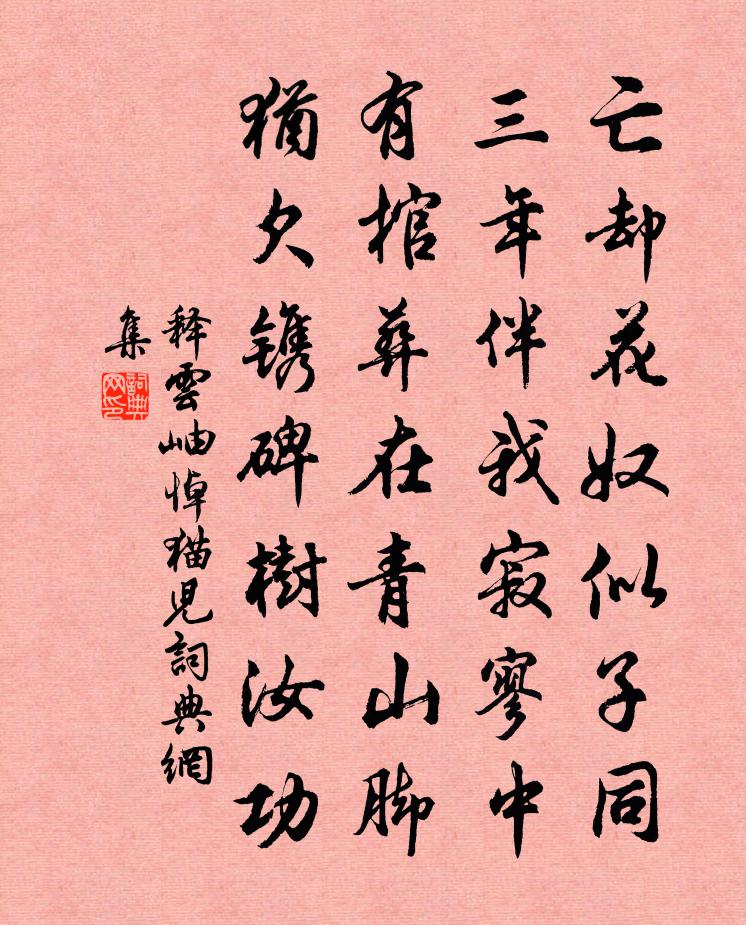 亡却花奴似子同
三年伴我寂寥中
有棺葬在青山脚
犹欠镌碑樹汝功
释雲岫悼猫児詞典網
集
詞典
网印